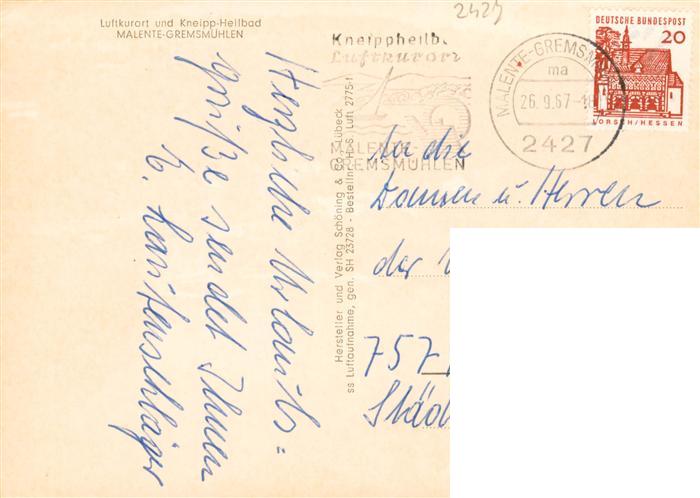 2427
Luftkurort und Kneipp-Heilbad
MALENTE-GREMSMÜHLEN
Herzliche Urlaubs=
grüße sendet Ihnen
E. Lautenschläger
Hersteller und Verlag Schöning & Co., Lübeck
ss Luftaufnahme, gen. SH 23728 - Bestellnr. H. S. Luft 2775-1
Kneippheilb
Luftkurort
MALENTE-
GREMSMÜHLEN
MALENTE-GREMSM
ma
26.9.67-18
2427
DEUTSCHE BUNDESPOST
20
LORSCH/HESSEN
An die
Damen u. Herren
der
757
Städ